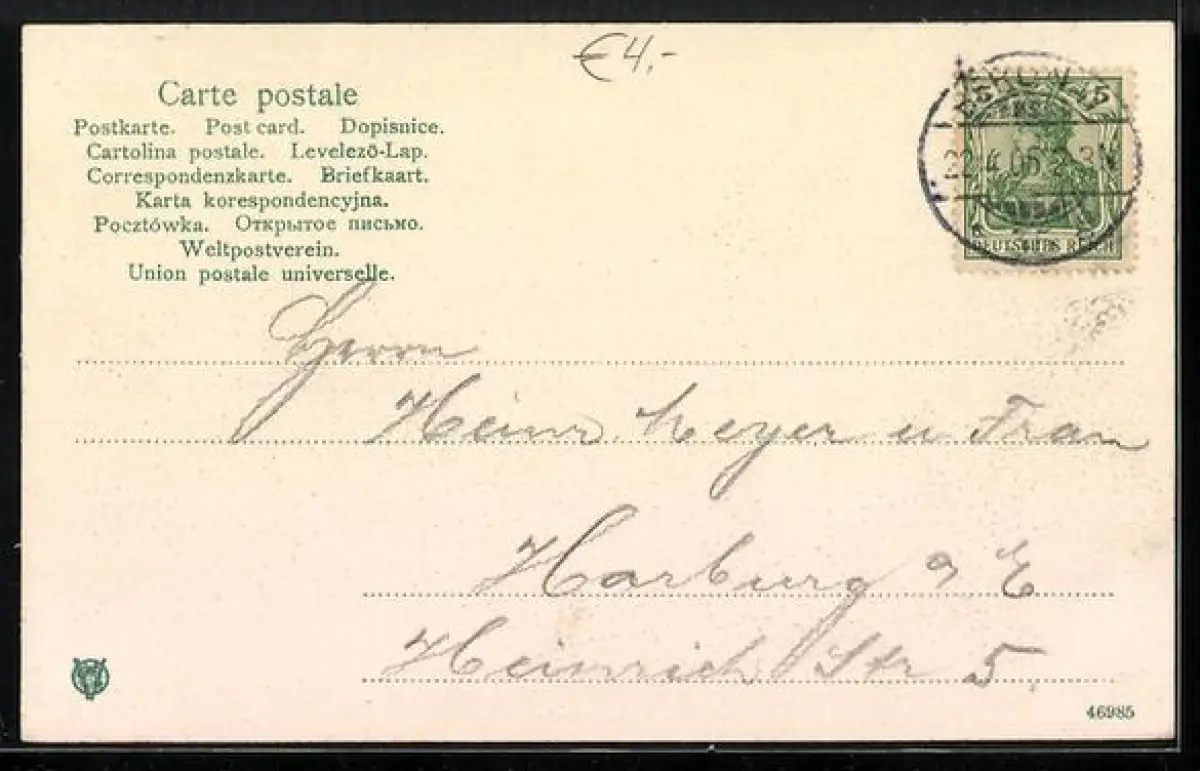 €4,-
Carte postale
Postkarte. Post card. Dopisnice.
Cartolina postale. Levelező-Lap.
Correspondenzkarte. Briefkaart.
Karta korespondencyjna.
Pocztówka. Открытое письмо.
Weltpostverein.
Union postale universelle.
5 5
DEUTSCHES REICH
Herrn
Heinr. Meyer u Frau
Harburg a E
Heinrich Str 5.
46985